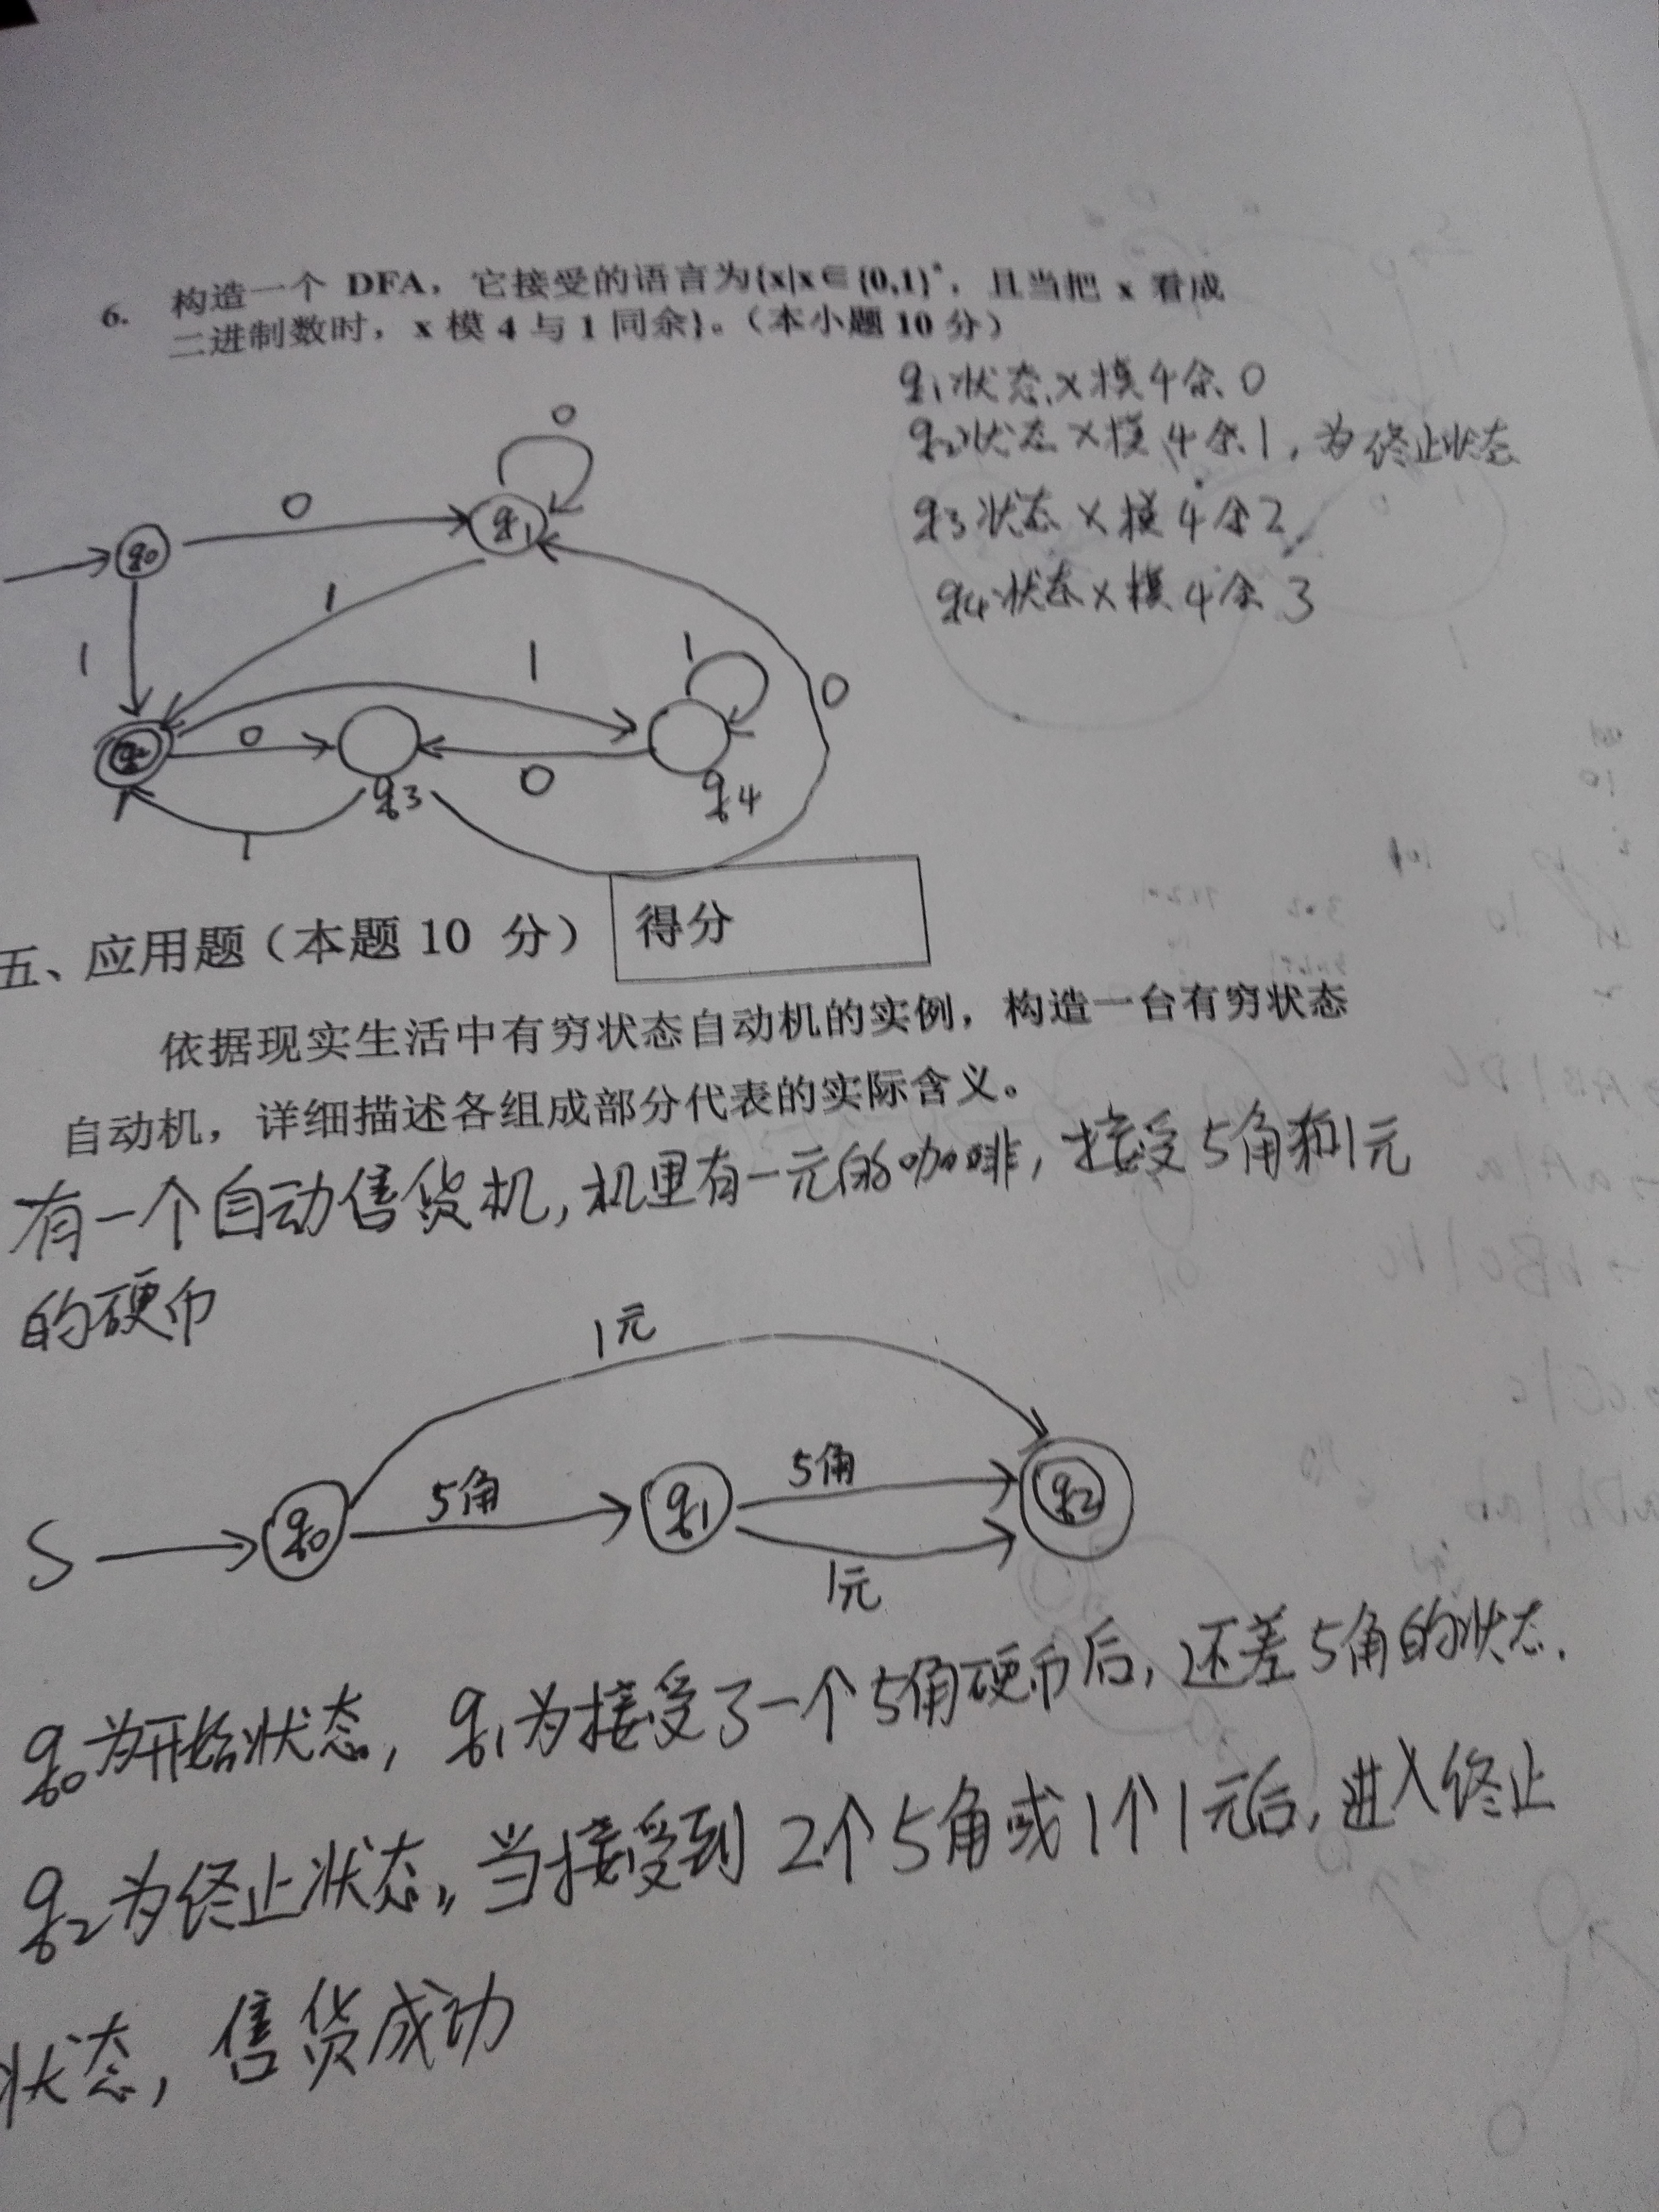 6. 构造一个 DFA，它接受的语言为{x|x∈{0,1}*，且当把 x 看成
二进制数时，x 模 4 与 1 同余}。（本小题 10 分）
q1状态 x模4余0
q2状态 x模4余1，为终止状态
q3状态 x模4余2
q4状态 x模4余3
0
0
q0
q1
1
1
1
1
0
q2
0
0
q3
q4
1
五、应用题（本题 10 分）
得分
依据现实生活中有穷状态自动机的实例，构造一台有穷状态
自动机，详细描述各组成部分代表的实际含义。
有一个自动售货机，机里有一元的咖啡，接受5角和1元
的硬币
1元
S
q0
5角
q1
5角
q2
1元
q0为开始状态，q1为接受了一个5角硬币后，还差5角的状态.
q2为终止状态，当接受到2个5角或1个1元后，进入终止
状态，售货成功